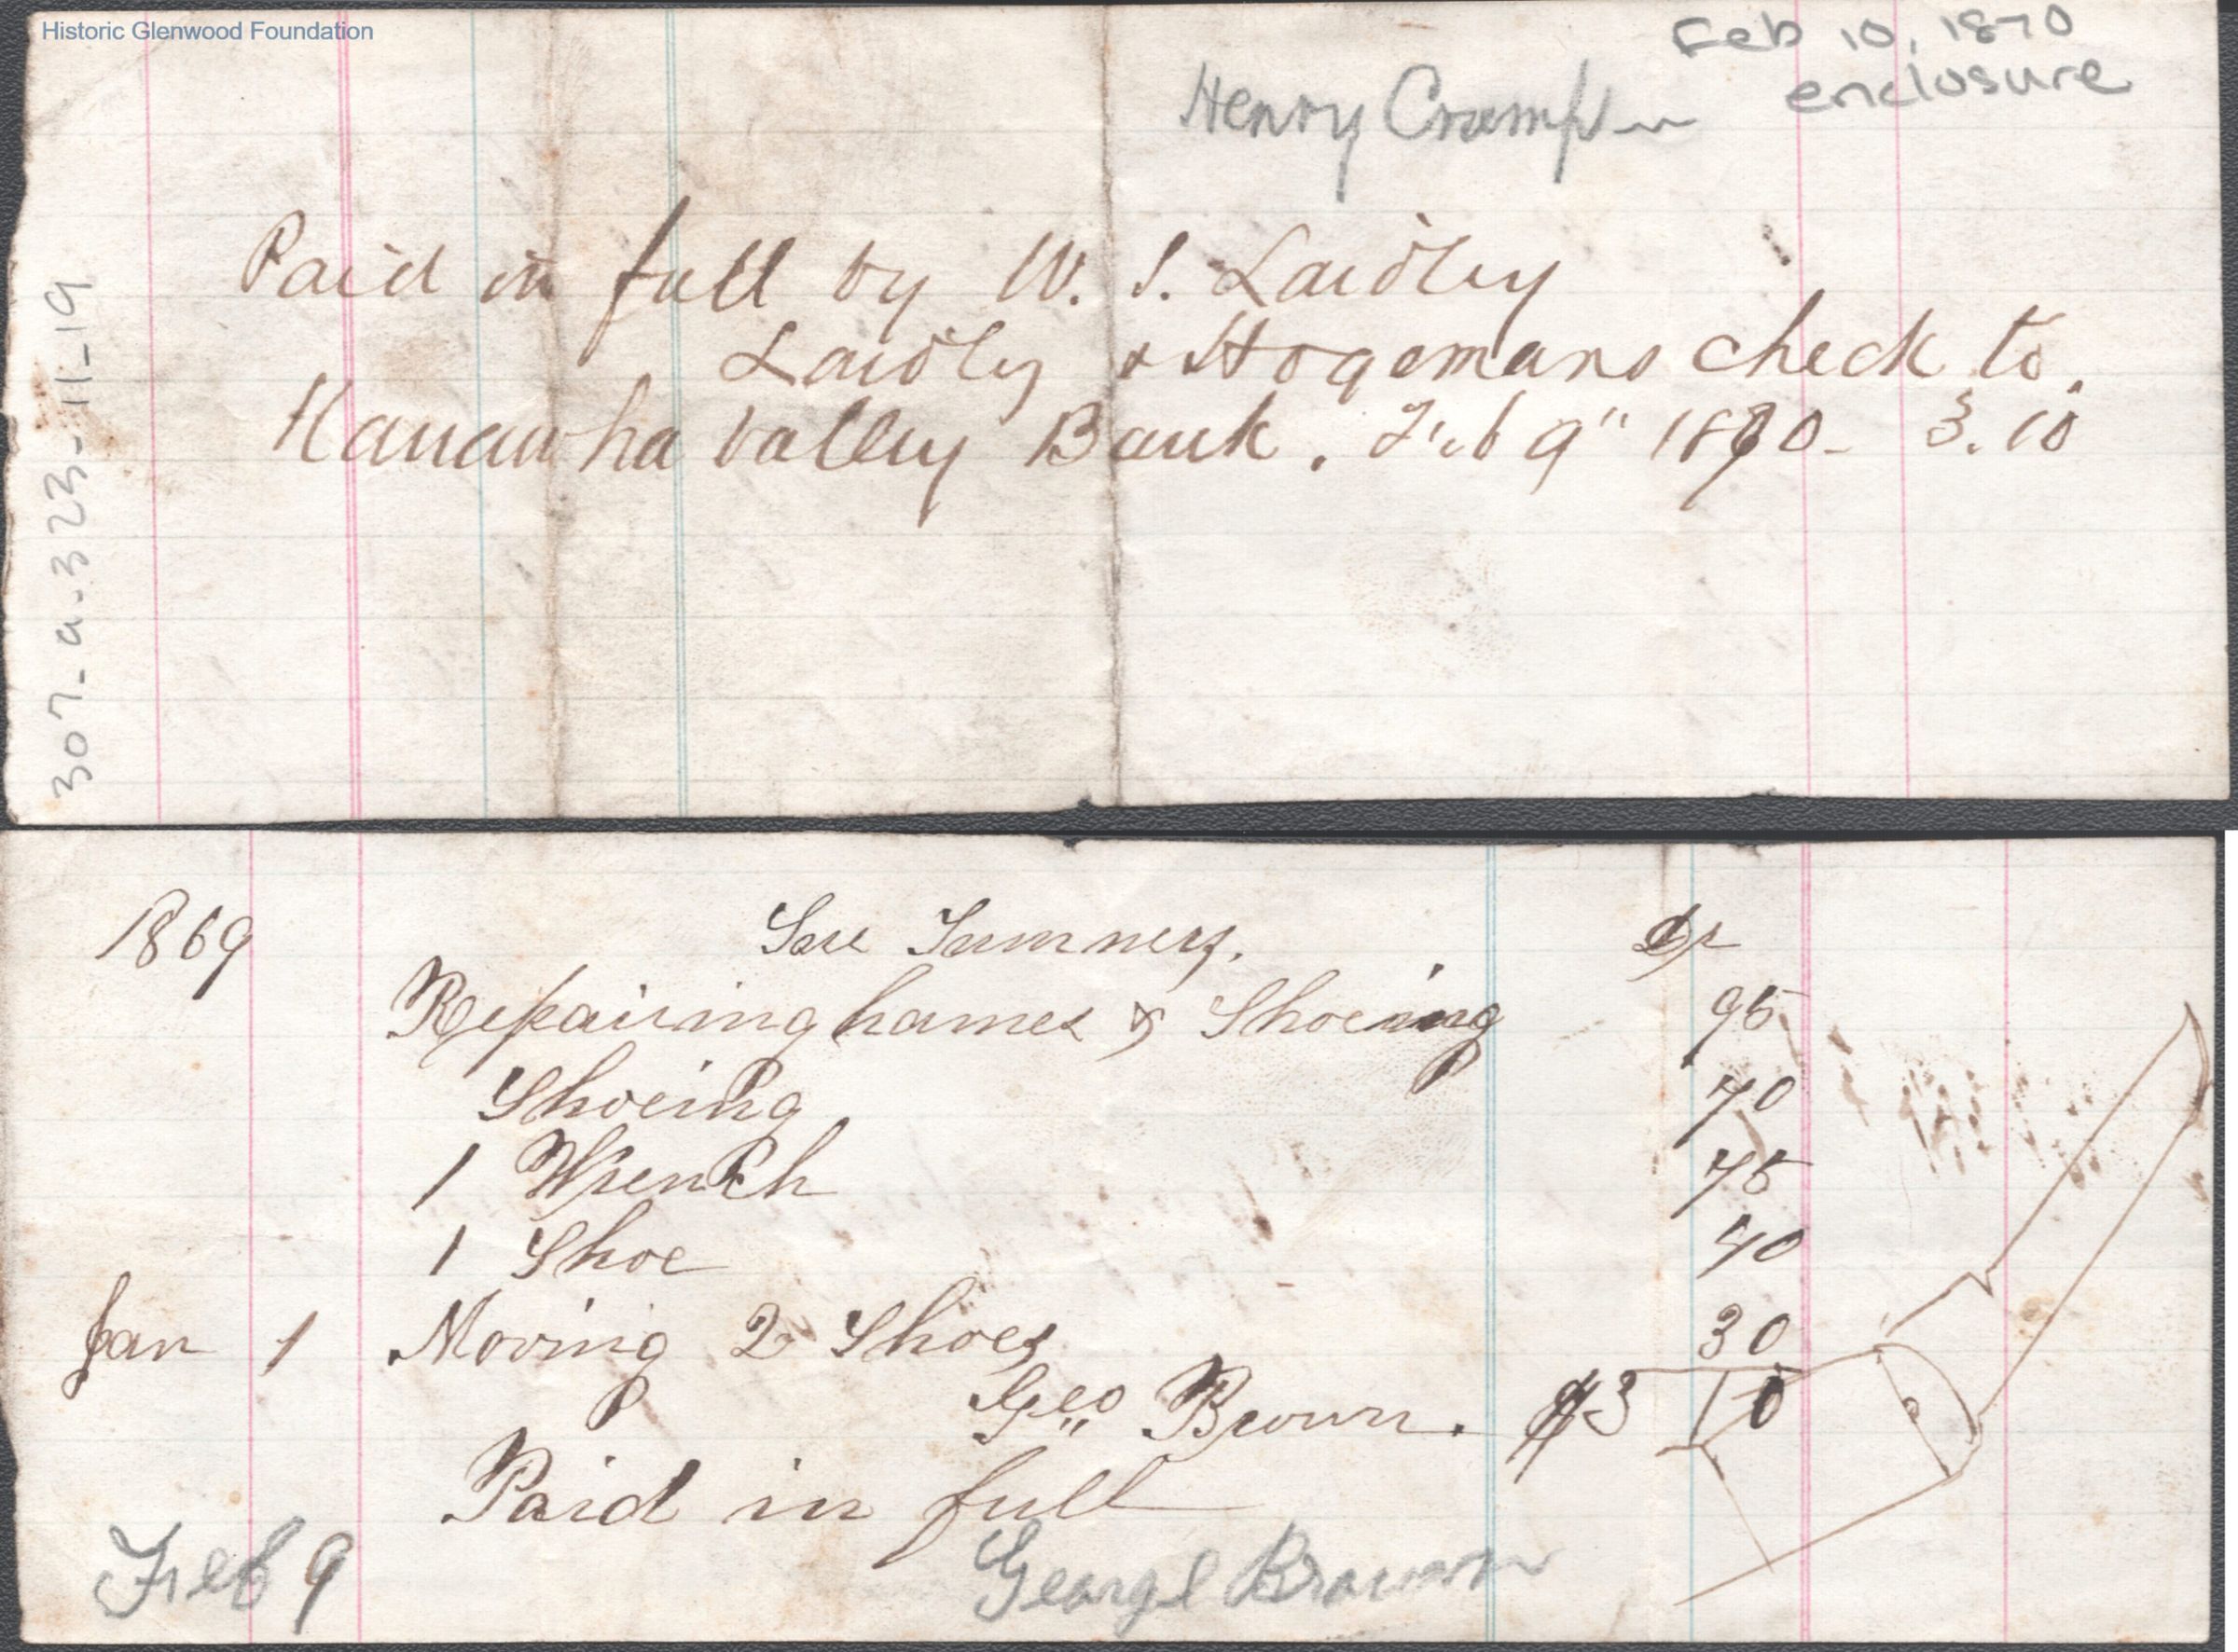 Historic Glenwood Foundation
Feb 10, 1870
enclosure
Henry
Paid in full by W. S. Laidley
Laidley & Hogemans check to.
Kanawha Valley Bank. Feb 9" 1870 - 3.10
307-a.323-11-19
1869 Sumners. Dr
Repairing hames & Shoeing 95
Shoeing 70
1 Wrench 75
1 Shoe 40
Jan 1 Moving 2 Shoes 30
Geo Brown. $3 10
Paid in full
Feb 9 George Brown